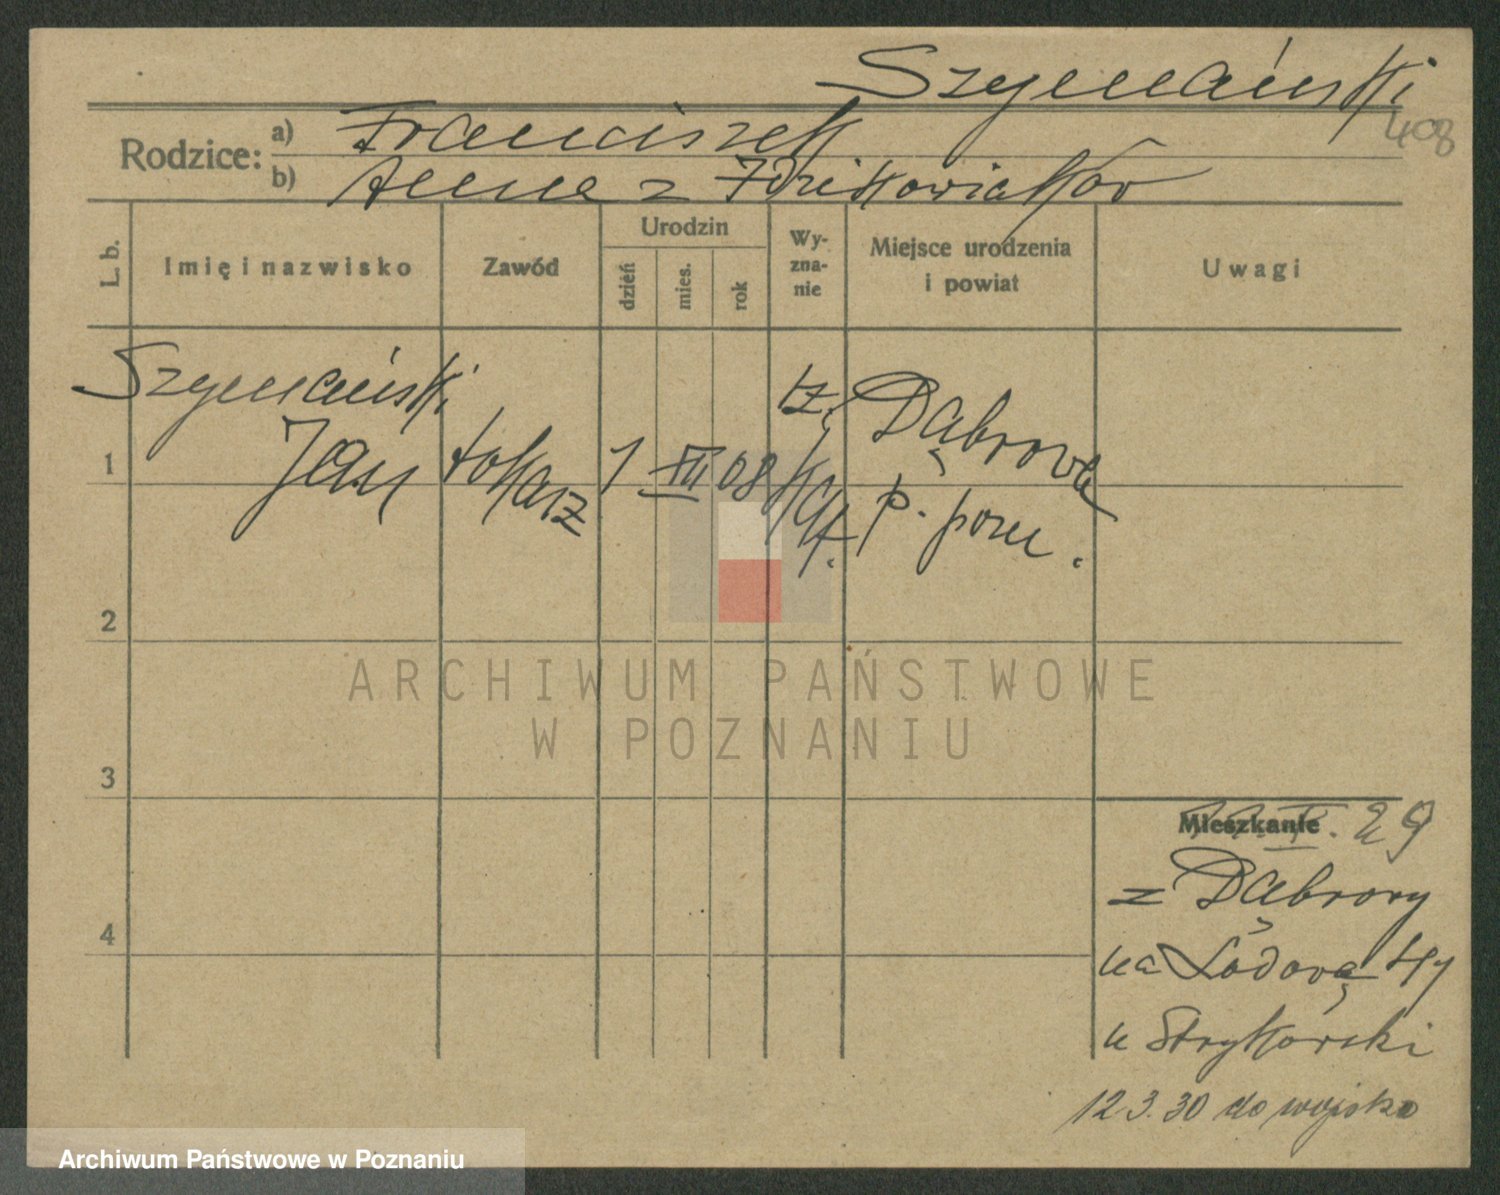 Szymański
408
Rodzice: a) Franciszek
b) Anna z Idzikowiaków
L. b.
Imię i nazwisko
Zawód
Urodzin
dzień
mies.
rok
Wy-
zna-
nie
Miejsce urodzenia
i powiat
Uwagi
Szymański
1 Jan tokarz 1 08 rz. kat. Dąbrowa
p. pozn.
2
3
4
Mieszkanie
29
z Dąbrowy
na Łódową
u Strykowski
12.3.30 do wojska
ARCHIWUM PAŃSTWOWE
W POZNANIU
Archiwum Państwowe w Poznaniu